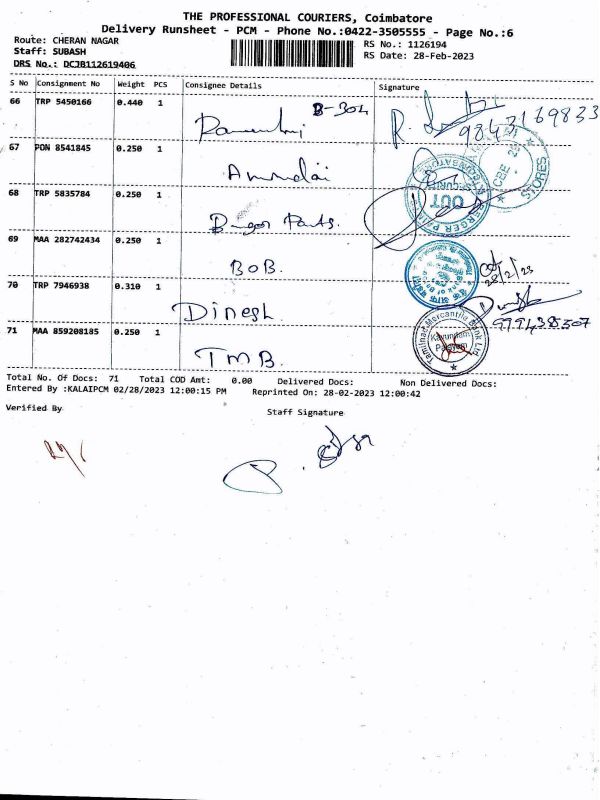 THE PROFESSIONAL COURIERS, Coimbatore
Delivery Runsheet - PCM - Phone No.:0422-3505555 - Page No.:6
Route: CHERAN NAGAR
Staff: SUBASH
DRS No.: DCJB112619406
RS No.: 1126194
RS Date: 28-Feb-2023
S No Consignment No Weight PCS Consignee Details Signature
66 TRP 5450166 0.440 1 B-304
9843169833
67 PON 8541845 0.250 1
CBE STORES
68 TRP 5835784 0.250 1
OUT
69 MAA 282742434 0.250 1 BOB.
28/2/23
70 TRP 7946938 0.310 1 Dinesh
9994385307
71 MAA 859208185 0.250 1 TMB.
Tamilnad Mercantile Bank Ltd
Total No. Of Docs: 71 Total COD Amt: 0.00 Delivered Docs: Non Delivered Docs:
Entered By :KALAIPCM 02/28/2023 12:00:15 PM Reprinted On: 28-02-2023 12:00:42
Verified By
Staff Signature